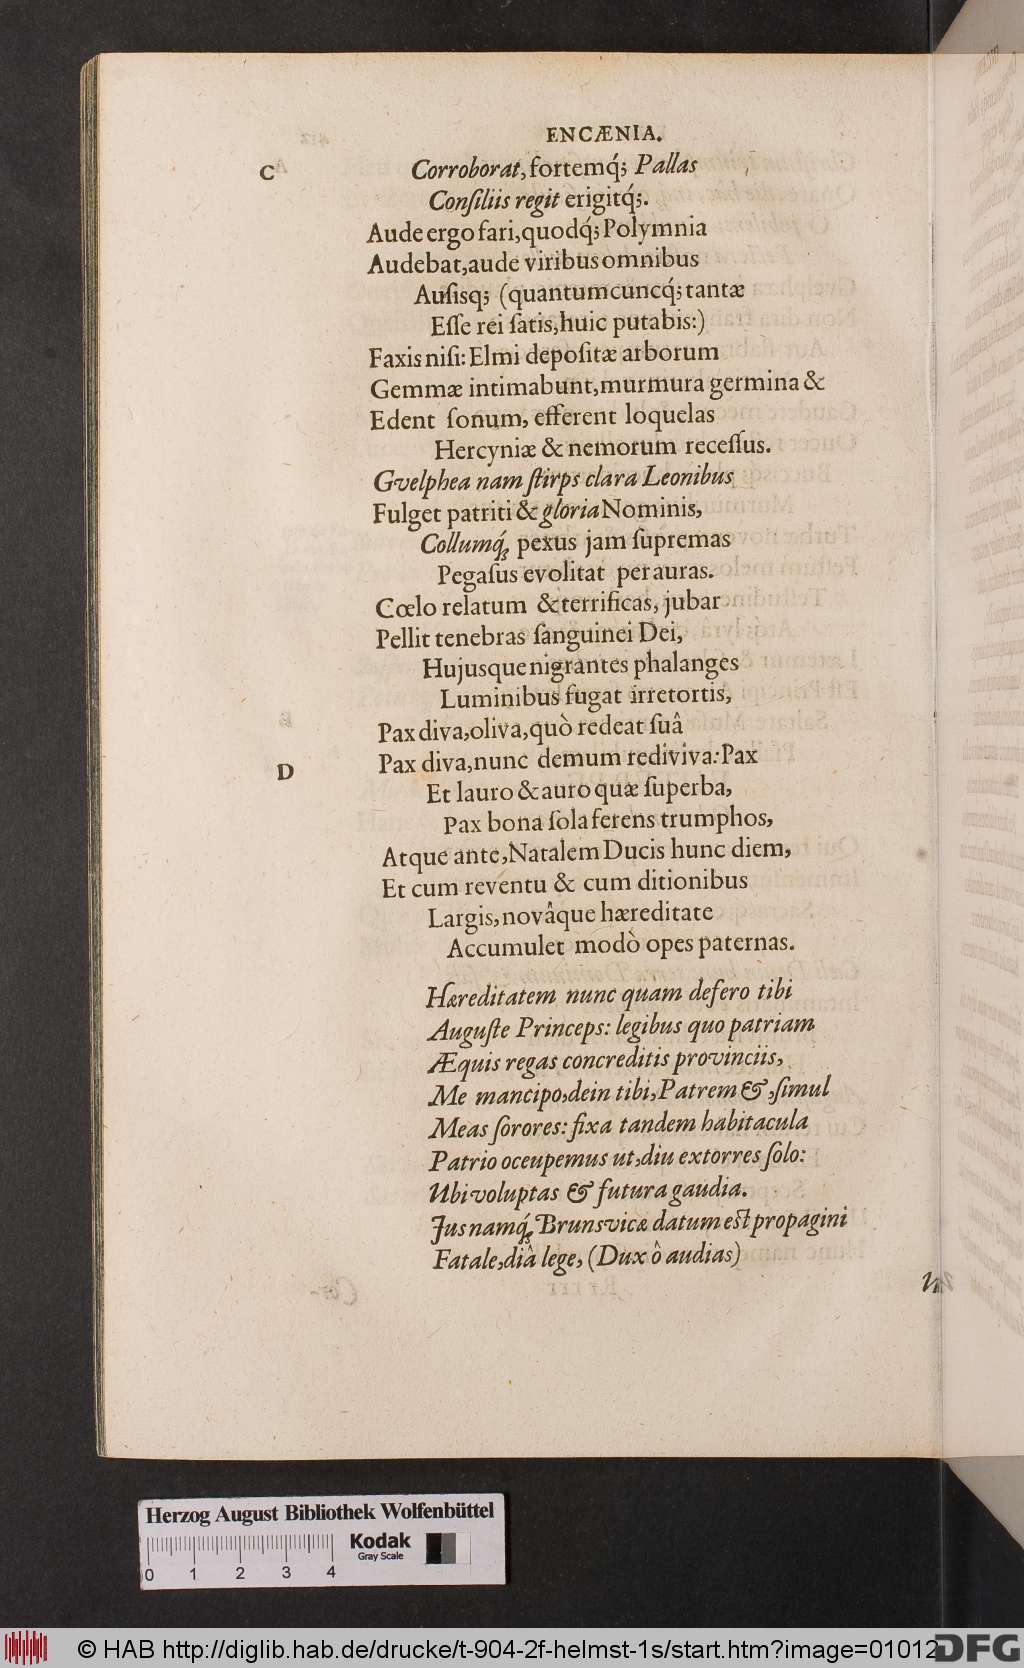 ENCÆNIA.
C
Corroborat, fortemq́; Pallas
Conſiliis regit erigitq́;.
Aude ergo fari, quodq́; Polymnia
Audebat, aude viribus omnibus
Auſisq; (quantumcuncq́; tantæ
Eſſe rei ſatis, huic putabis:)
Faxis niſi: Elmi depoſitæ arborum
Gemmæ intimabunt, murmura germina &
Edent ſonum, efferent loquelas
Hercyniæ & nemorum receſſus.
Gvelphea nam ſtirps clara Leonibus
Fulget patriti & gloria Nominis,
Collumq́; pexus jam ſupremas
Pegaſus evolitat per auras.
Cœlo relatum & terrificas, jubar
Pellit tenebras ſanguinei Dei,
Hujusque nigrantes phalanges
Luminibus fugat irretortis,
Pax diva, oliva, quò redeat ſuâ
D
Pax diva, nunc demum rediviva: Pax
Et lauro & auro quæ ſuperba,
Pax bona ſola ferens trumphos,
Atque ante, Natalem Ducis hunc diem,
Et cum reventu & cum ditionibus
Largis, novâque hæreditate
Accumulet modò opes paternas.
Hæreditatem nunc quam defero tibi
Auguſte Princeps: legibus quo patriam
Æquis regas concreditis provinciis,
Me mancipo, dein tibi, Patrem &, ſimul
Meas ſorores: fixa tandem habitacula
Patrio oceupemus ut, diu extorres ſolo:
Ubi voluptas & futura gaudia.
Jus namq́; Brunsvicæ datum eſt propagini
Fatale, diâ lege, (Dux ô audias)
Herzog August Bibliothek Wolfenbüttel
Kodak
Gray Scale
0 1 2 3 4
© HAB http://diglib.hab.de/drucke/t-904-2f-helmst-1s/start.htm?image=01012
DFG